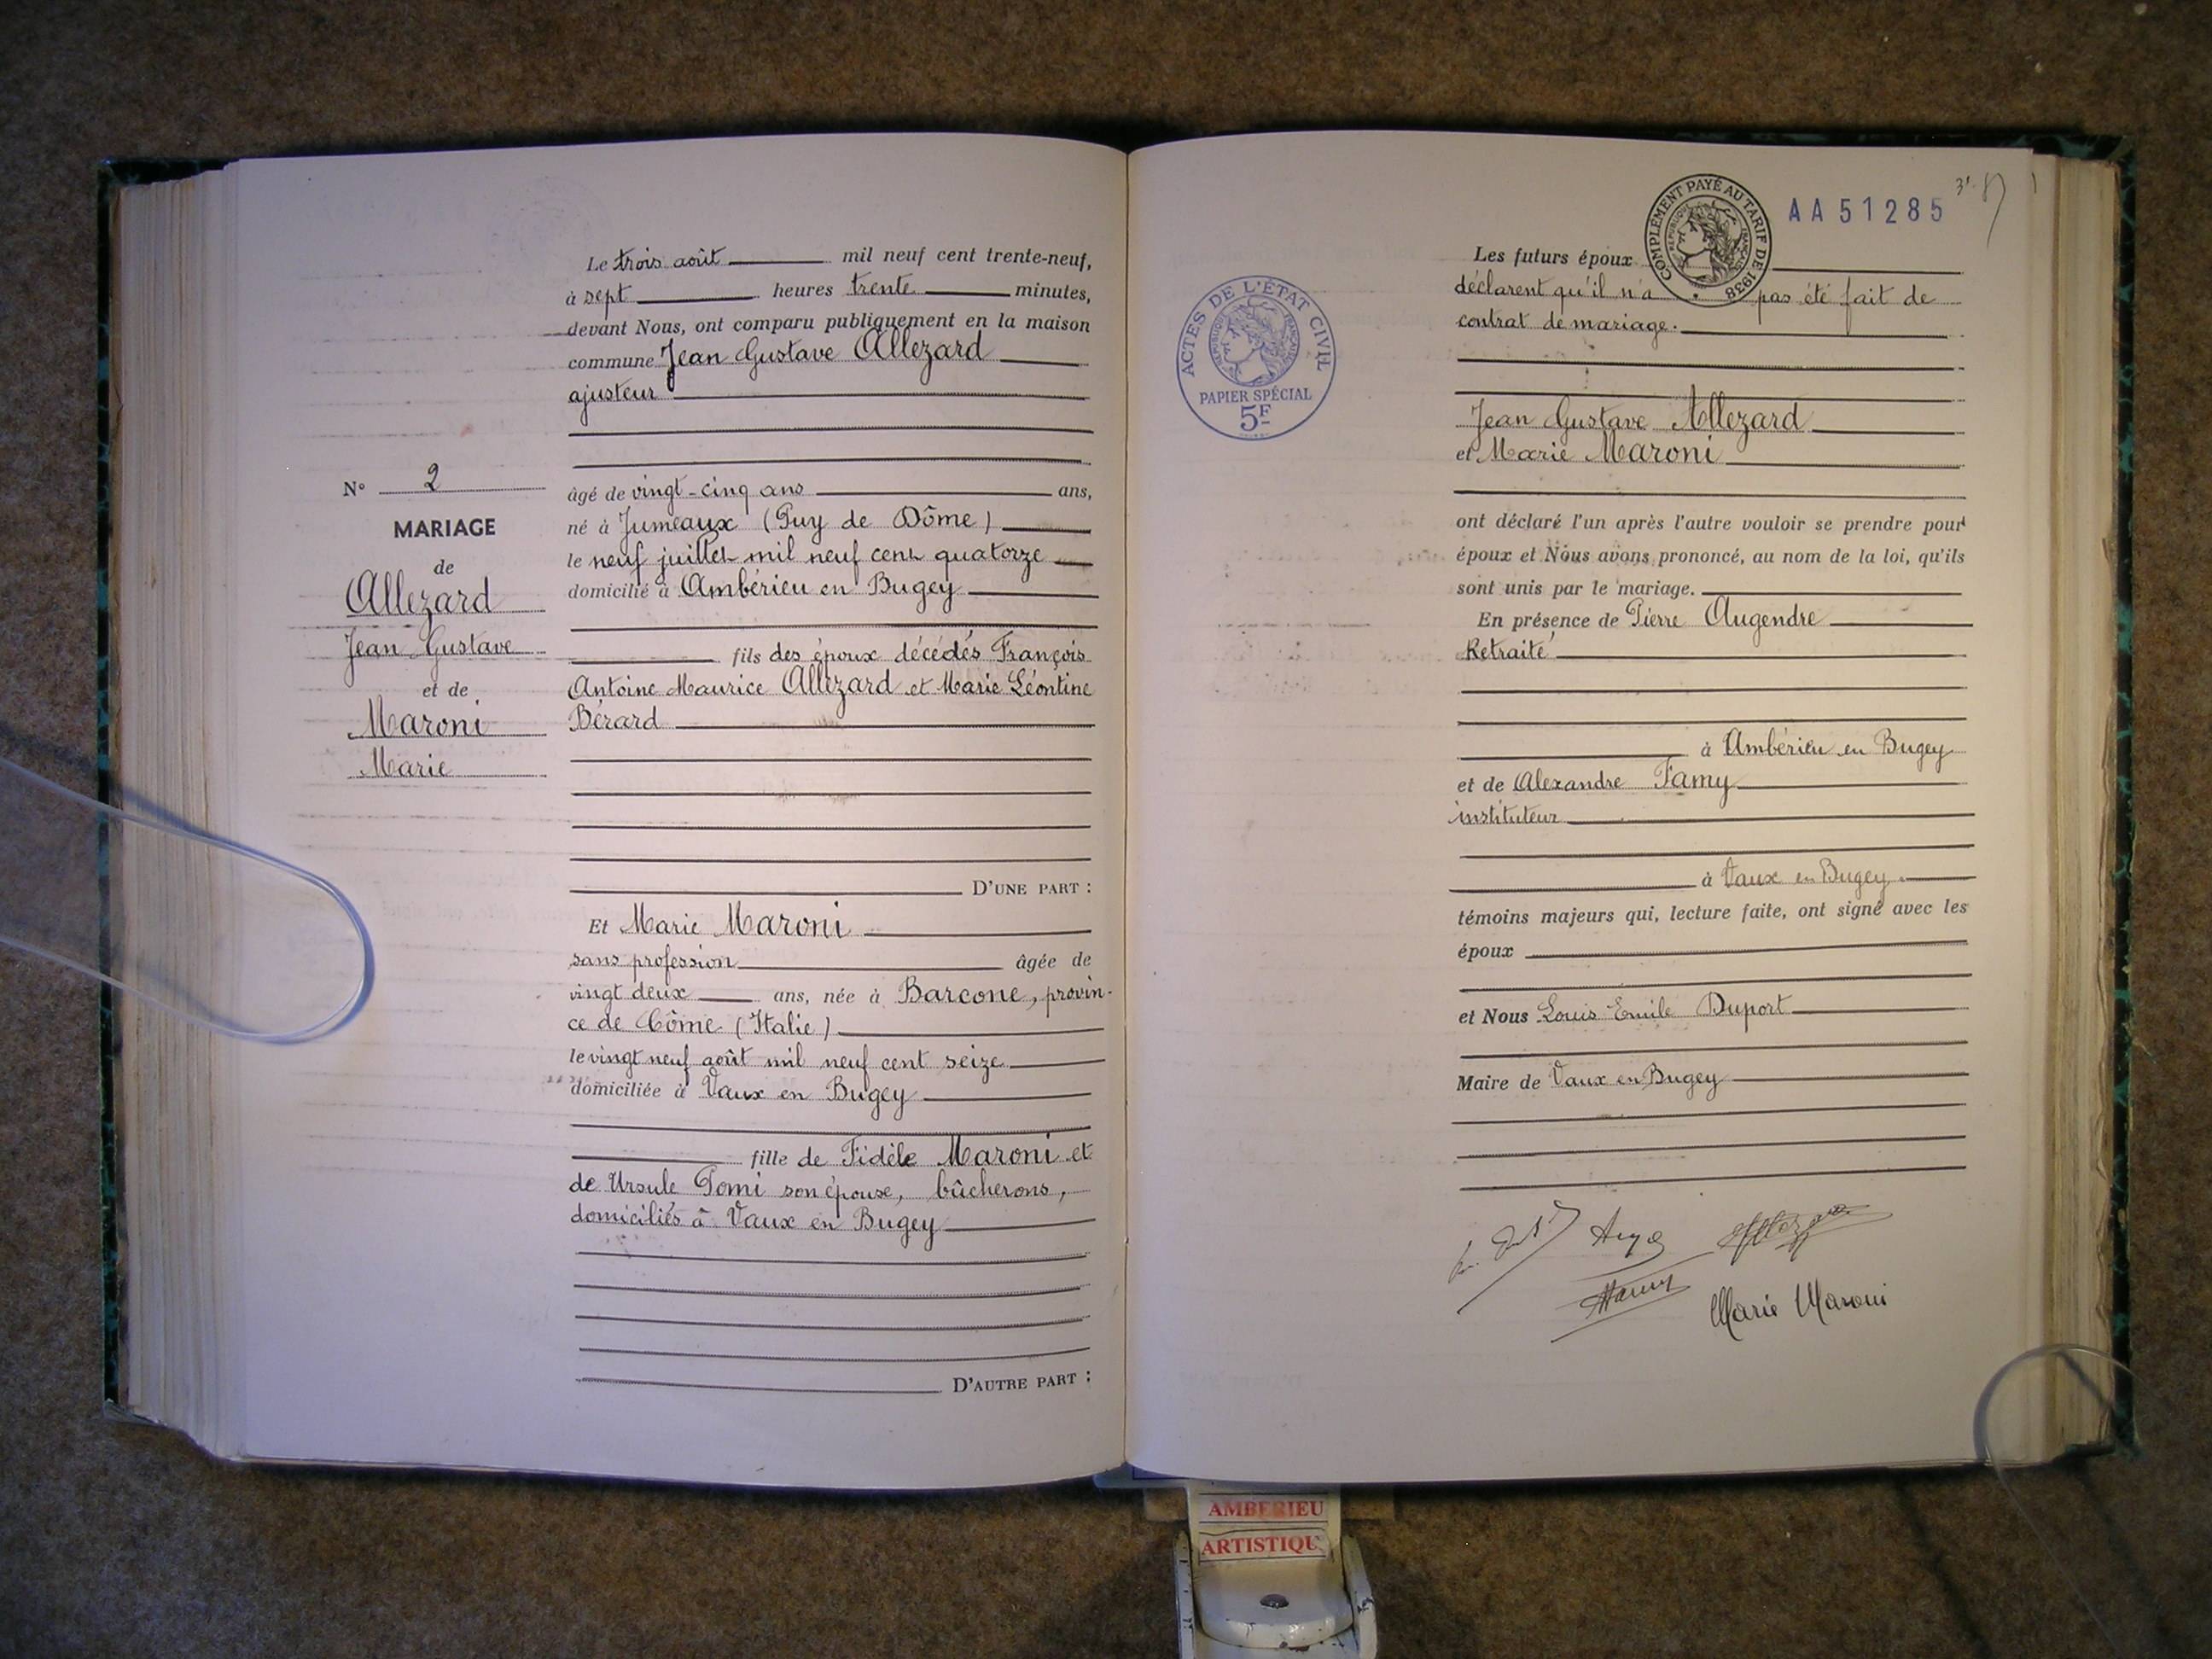 N° 2
MARIAGE
de
Allezard
Jean Gustave
et de
Maroni
Marie
Le trois août mil neuf cent trente-neuf,
à sept heures trente minutes,
devant Nous, ont comparu publiquement en la maison
commune Jean Gustave Allezard
ajusteur
âgé de vingt-cinq ans ans,
né à Jumeaux (Puy de Dôme)
le neuf juillet mil neuf cent quatorze
domicilié à Ambérieu en Bugey
fils des époux décédés François
Antoine Maurice Allezard et Marie Léontine
Bérard
D'UNE PART :
Et Marie Maroni
sans profession âgée de
vingt deux ans, née à Barcone, provin-
ce de Côme (Italie)
le vingt neuf août mil neuf cent seize
domiciliée à Vaux en Bugey
fille de Fidèle Maroni et
de Ursule Pomi son épouse, bûcherons,
domiciliés à Vaux en Bugey
D'AUTRE PART :
COMPLÉMENT PAYÉ AU TARIF DE 1938
RÉPUBLIQUE FRANÇAISE
AA51285
ACTES DE L'ÉTAT CIVIL
RÉPUBLIQUE FRANÇAISE
PAPIER SPÉCIAL
5F
Les futurs époux
déclarent qu'il n'a pas été fait de
contrat de mariage.
Jean Gustave Allezard
et Marie Maroni
ont déclaré l'un après l'autre vouloir se prendre pour
époux et Nous avons prononcé, au nom de la loi, qu'ils
sont unis par le mariage.
En présence de Pierre Augendre
Retraité
à Ambérieu en Bugey
et de Alexandre Famy
instituteur
à Vaux en Bugey.
témoins majeurs qui, lecture faite, ont signé avec les
époux
et Nous Louis Emile Duport
Maire de Vaux en Bugey
Marie Maroni
AMBERIEU
ARTISTIQU